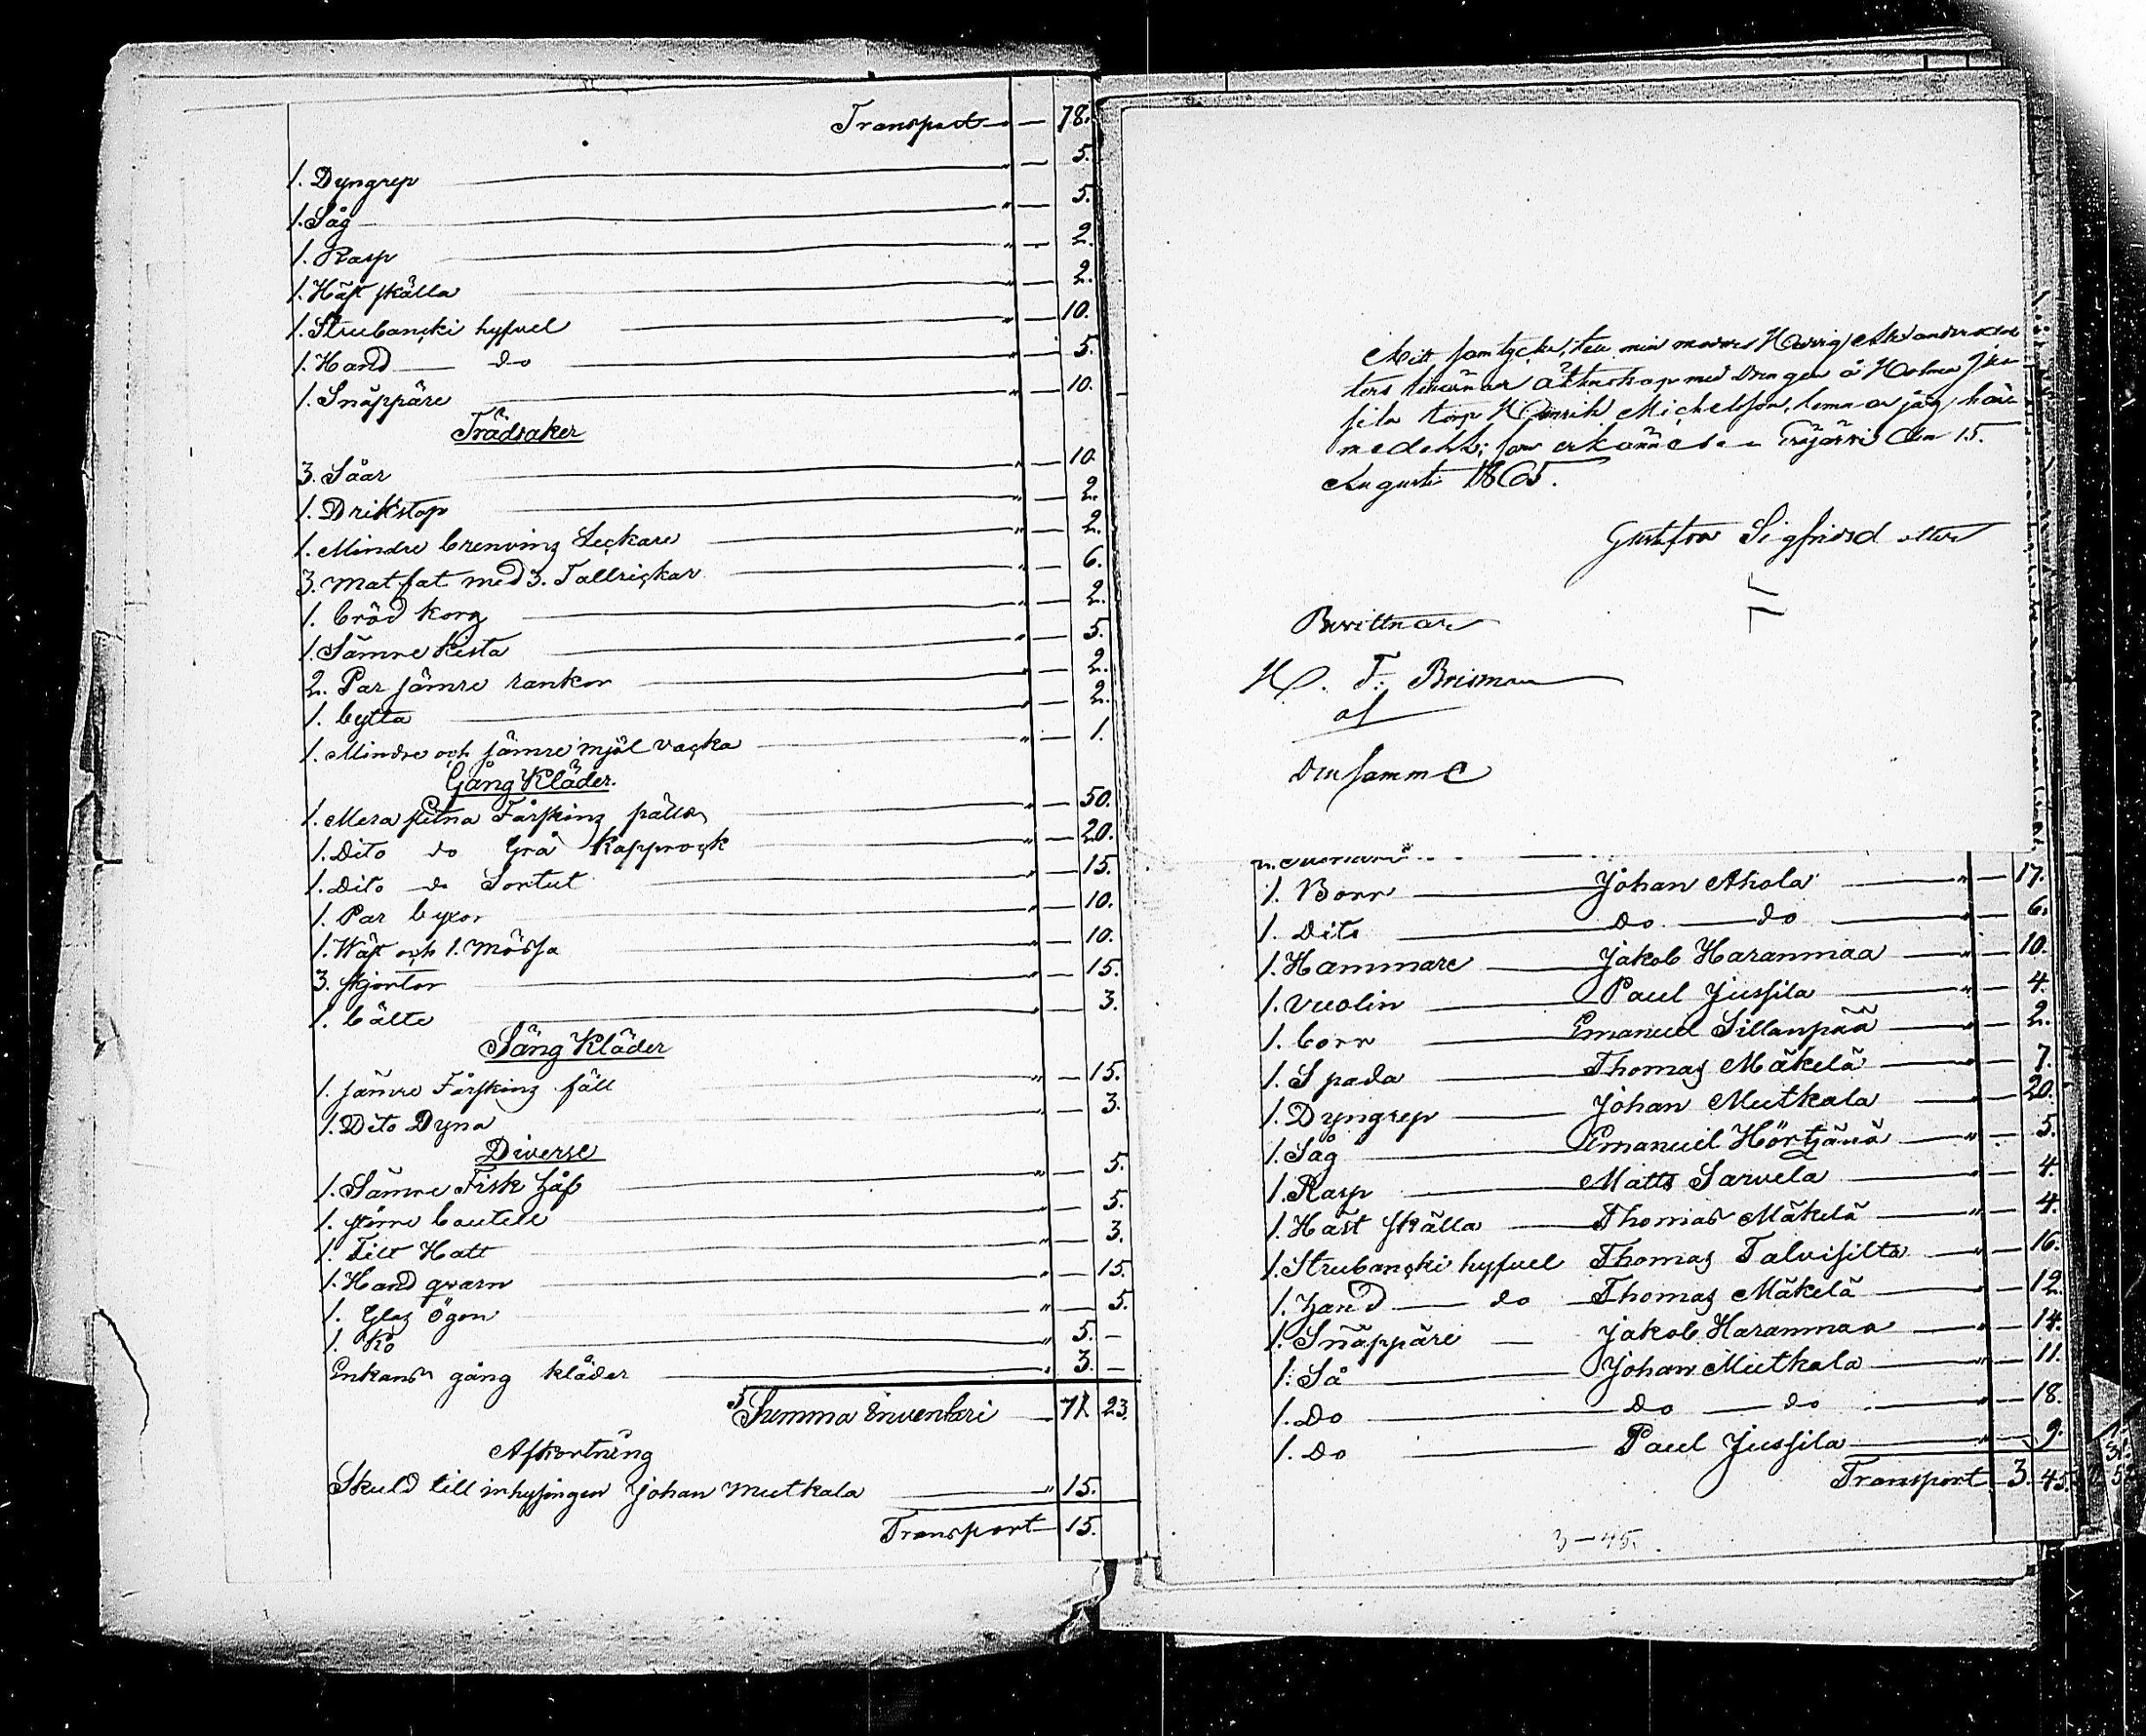 Transport " — 78.
1. Dyngrep " — 5.
1. Såg " — 5.
1. Rasp " — 2.
1. Häst skälla " — 2.
1. Strubancki hyfvel " — 10.
1. Hand — do " — 5.
1. Snäppäre " — 10.
Trädsaker
3. Såar " — 10.
1. Drikstop " — 2.
1. Mindre brenving Leckare " — 2.
3. mat fat med 3. Tallrickar " — 6.
1. bröd korg " — 2.
1. Sämre Kista " — 5.
2. Par sämre rankor " — 2.
1. bytta " — 2.
1. Mindre och sämre mjöl vacka " — 1.
Gång Kläder.
1. Mera slitna Fårskinz pälts " — 50.
1. Dito do Grå Kapprock " — 20.
1. Dito do Sortut " — 15.
1. Par byxor " — 10.
1. Wäst och 1. Mössa " — 10.
3. skjortor " — 15.
1. bälte " — 3.
Säng Kläder
1. sämre Fårskinz fäll " — 15.
1. Dito Dyna " — 3.
Diverse
1. Sämre Fisk håf " — 5.
1. större boutell " — 5.
1. Filt Hatt " — 3.
1. Hand qvarn " — 15.
1. Glas ögon " — 5.
1. Ko " 5. —
Enkans gång kläder " 3. —
Summa inventari — 71. 23.
Afkortning
Skuld till inhysingen Johan Mutkala " 15.
Transport 15.
Mitt samtycke, till min moders Hedvig Alexandersdot
ters äktenskap med Drengen å Holma Jus
sila torp Henrik Michelsson, lemnar jag här
medelst; som erkännes Evijärvi den 15.
Augusti 1865.
Gustfva Sigfridsdotter
Bevittnar
H. F. Brisman
af
Densamme
1. Borr Johan Ahola " — 17.
1. Dito do — do " — 6.
1. Hammare Jakob Haranmaa " — 10.
1. vuolin Paul Jussila " — 4.
1. borr Emanuel Sillanpää " — 2.
1. Spada Thomas Mäkelä " — 7.
1. Dyngrep Johan Mutkala " — 20.
1. Såg Emanuel Hörtjänä " — 5.
1. Rasp Matts Sarvela " — 4.
1. Häst skälla Thomas Mäkelä " — 4.
1. Strubancki hyfvel Thomas Talvisilta " — 16.
1. hand — do Thomas Mäkelä " — 12.
1. Snäppäre — Jakob Haranmaa " — 14.
1. Så Johan Mutkala " — 11.
1. Do do — do " — 18.
1. Do Paul Jussila " — 9.
Transport 3. 45.
3 — 45.